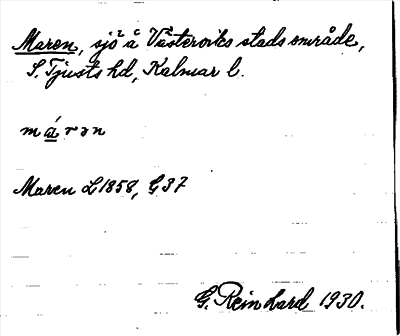 Maren, sjö å Västerviks stads område,
S. Tjusts hd, Kalmar l.
márən
Maren L1858, G37
G. Reinhard 1930.